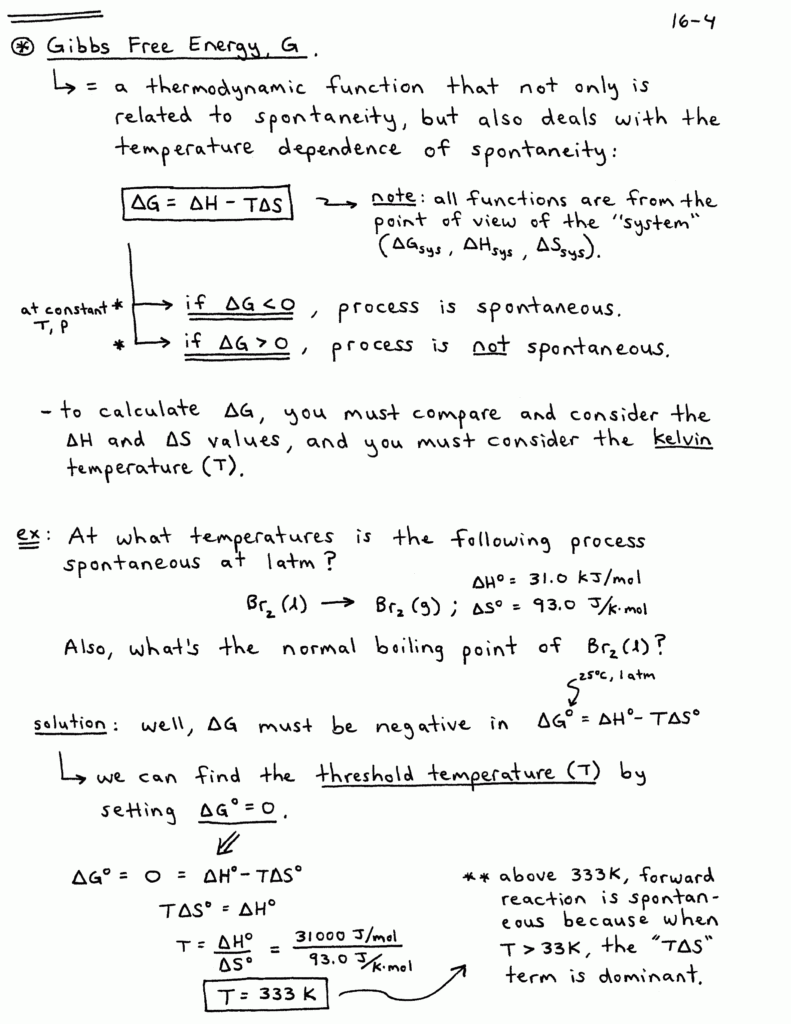 16-4
⊛ Gibbs Free Energy, G.
↳ = a thermodynamic function that not only is
related to spontaneity, but also deals with the
temperature dependence of spontaneity:
ΔG = ΔH - TΔS → note: all functions are from the
point of view of the "system"
(ΔGsys, ΔHsys, ΔSsys).
at constant * → if ΔG < 0, process is spontaneous.
T, P
* → if ΔG > 0, process is not spontaneous.
- to calculate ΔG, you must compare and consider the
ΔH and ΔS values, and you must consider the kelvin
temperature (T).
ex: At what temperatures is the following process
spontaneous at 1atm?
Br₂(l) → Br₂(g) ; ΔH° = 31.0 kJ/mol
ΔS° = 93.0 J/K·mol
Also, what's the normal boiling point of Br₂(l)?
25°C, 1atm
solution: well, ΔG must be negative in ΔG° = ΔH° - TΔS°
↳ we can find the threshold temperature (T) by
setting ΔG° = 0.
ΔG° = 0 = ΔH° - TΔS°
TΔS° = ΔH°
T = ΔH°/ΔS° = 31000 J/mol / 93.0 J/K·mol
T = 333 K
** above 333K, forward
reaction is spontan-
eous because when
T > 33K, the "TΔS"
term is dominant.